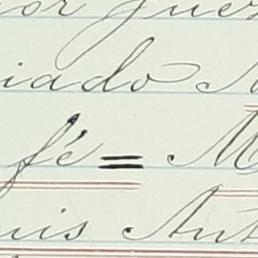 or Jues
iado M
fé = M
uis Ant